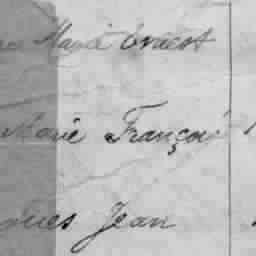 Marie Ernest
Marie François
ques Jean